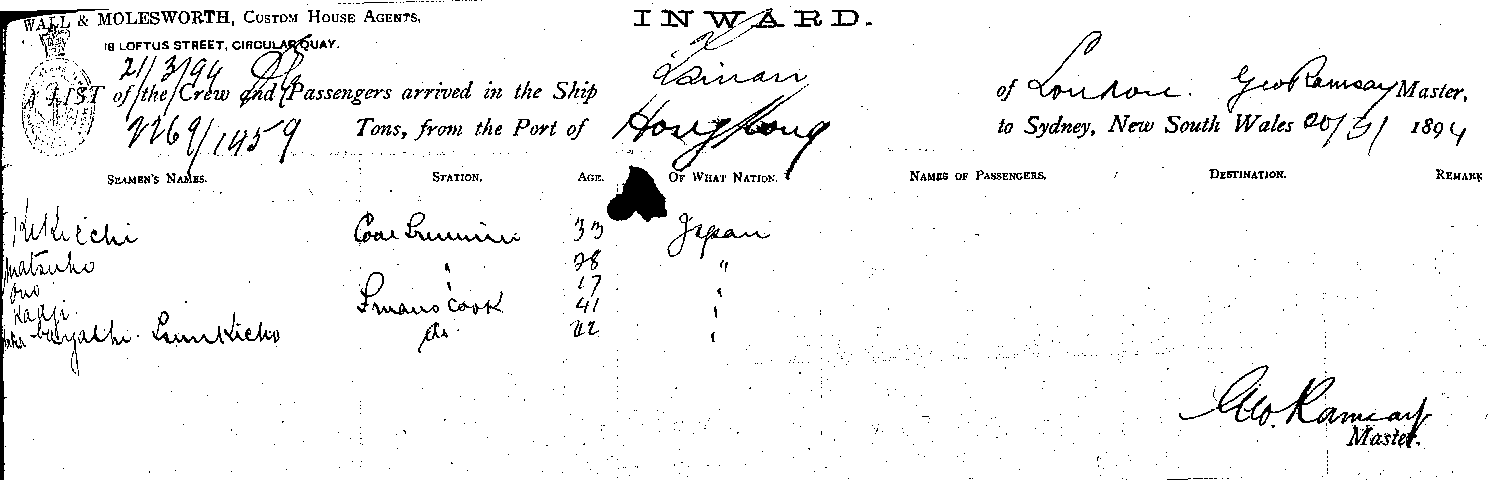 WALL & MOLESWORTH, CUSTOM HOUSE AGENTS,
INWARD.
18 LOFTUS STREET, CIRCULAR QUAY.
21/3/94
A LIST of the Crew and Passengers arrived in the Ship Tsinan of London. Geo Ramsay Master,
2269/1459 Tons, from the Port of Hong Kong to Sydney, New South Wales 20/3/ 1894
SEAMEN'S NAMES. STATION. AGE. OF WHAT NATION. NAMES OF PASSENGERS. DESTINATION. REMARK
Kikiechi 33 Japan
Matsuko " 28 "
Ono 17 "
Kadji cook 41 "
do 22 "
Geo. Ramsay
Master.